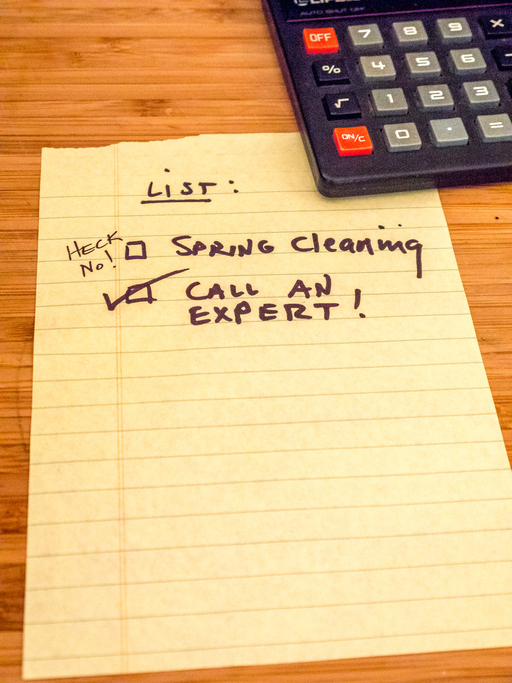 AUTO SHUT OFF
OFF 7 8 9 ×
% 4 5 6 -
√ 1 2 3
ON/C 0 . =
LIST:
HECK NO! SPRING Cleaning
CALL AN
EXPERT!